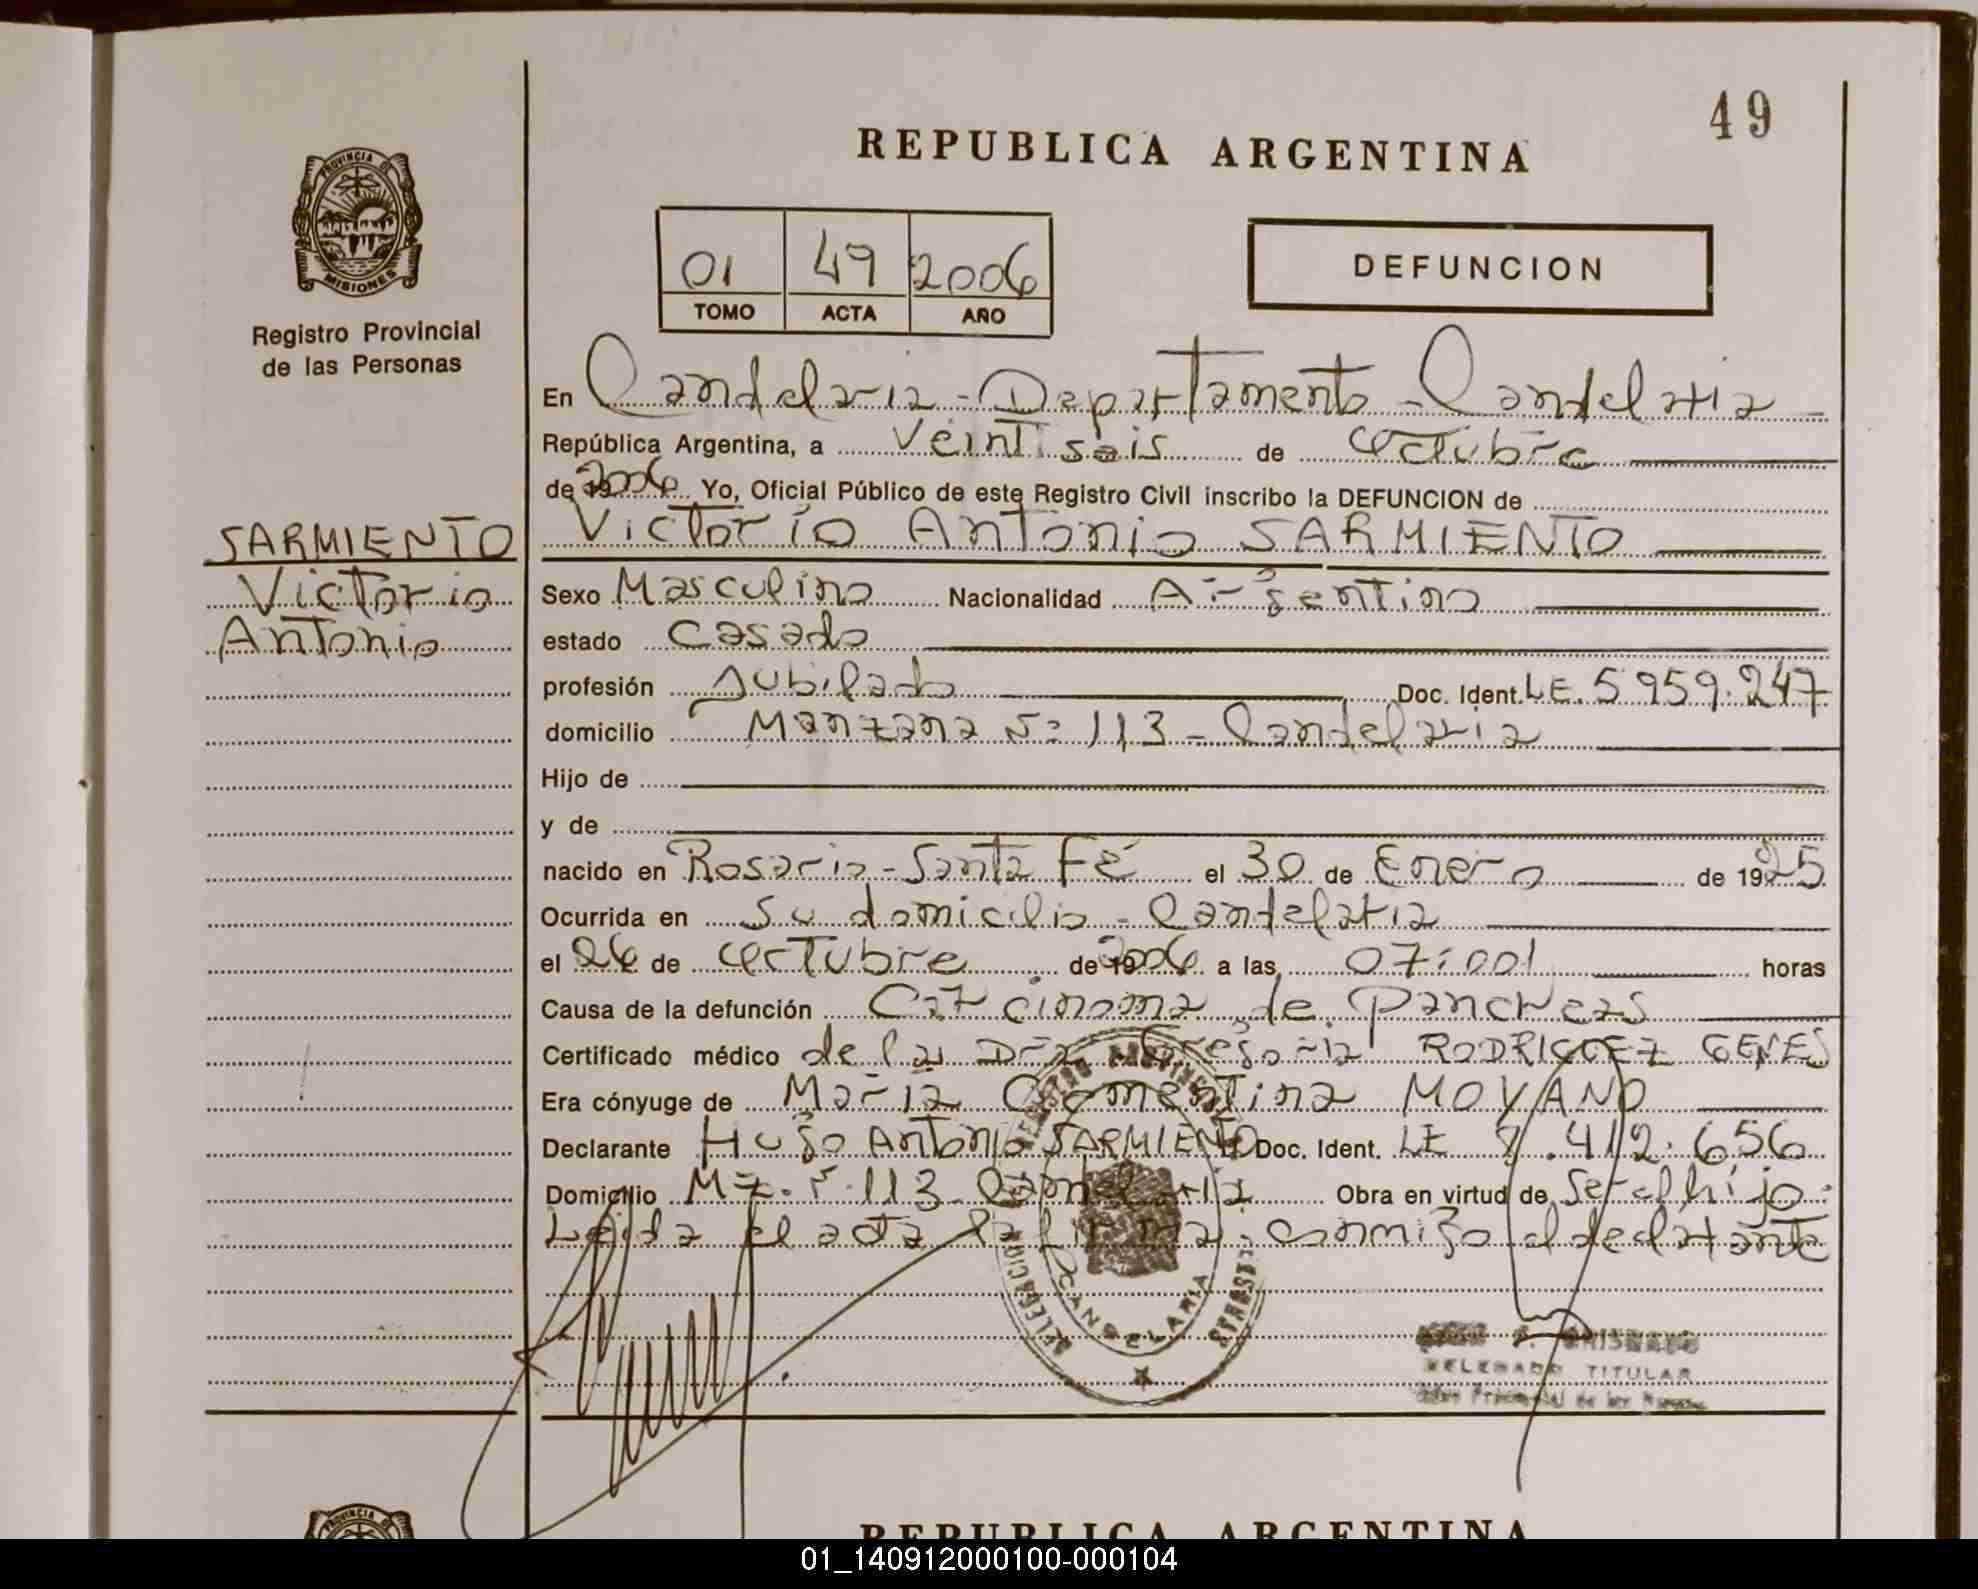 49
REPUBLICA ARGENTINA
PROVINCIA DE
MISIONES
Registro Provincial
de las Personas
01 49 2006
TOMO ACTA AÑO
DEFUNCION
En Candelaria - Departamento - Candelaria -
República Argentina, a Veintiseis de Octubre
de 2006 Yo, Oficial Público de este Registro Civil inscribo la DEFUNCION de
Victorio Antonio SARMIENTO
SARMIENTO
Victorio
Antonio
Sexo Masculino Nacionalidad Argentino
estado Casado
profesión Jubilado Doc. Ident. LE. 5959.247
domicilio Manzana Nº 113 - Candelaria
Hijo de
y de
nacido en Rosario - Santa Fé el 30 de Enero de 1925
Ocurrida en Su domicilio - Candelaria
el 26 de Octubre de 2006 a las 07:00 horas
Causa de la defunción Carcinoma de Pancreas
Certificado médico de la Dra Gregoria RODRIGUEZ GENES
Era cónyuge de Maria MOYANO
Declarante Hugo Antonio SARMIENTO Doc. Ident. LE .412.656
Domicilio Mz. Nº 113 Candelaria Obra en virtud de Ser el hijo.
Leida el acta la firma conmigo el declarante
REGISTRO PROVINCIAL
PERSONAS
DELEGACION
CANDELARIA
DELEGADO TITULAR
REPUBLICA ARGENTINA
01_140912000100-000104